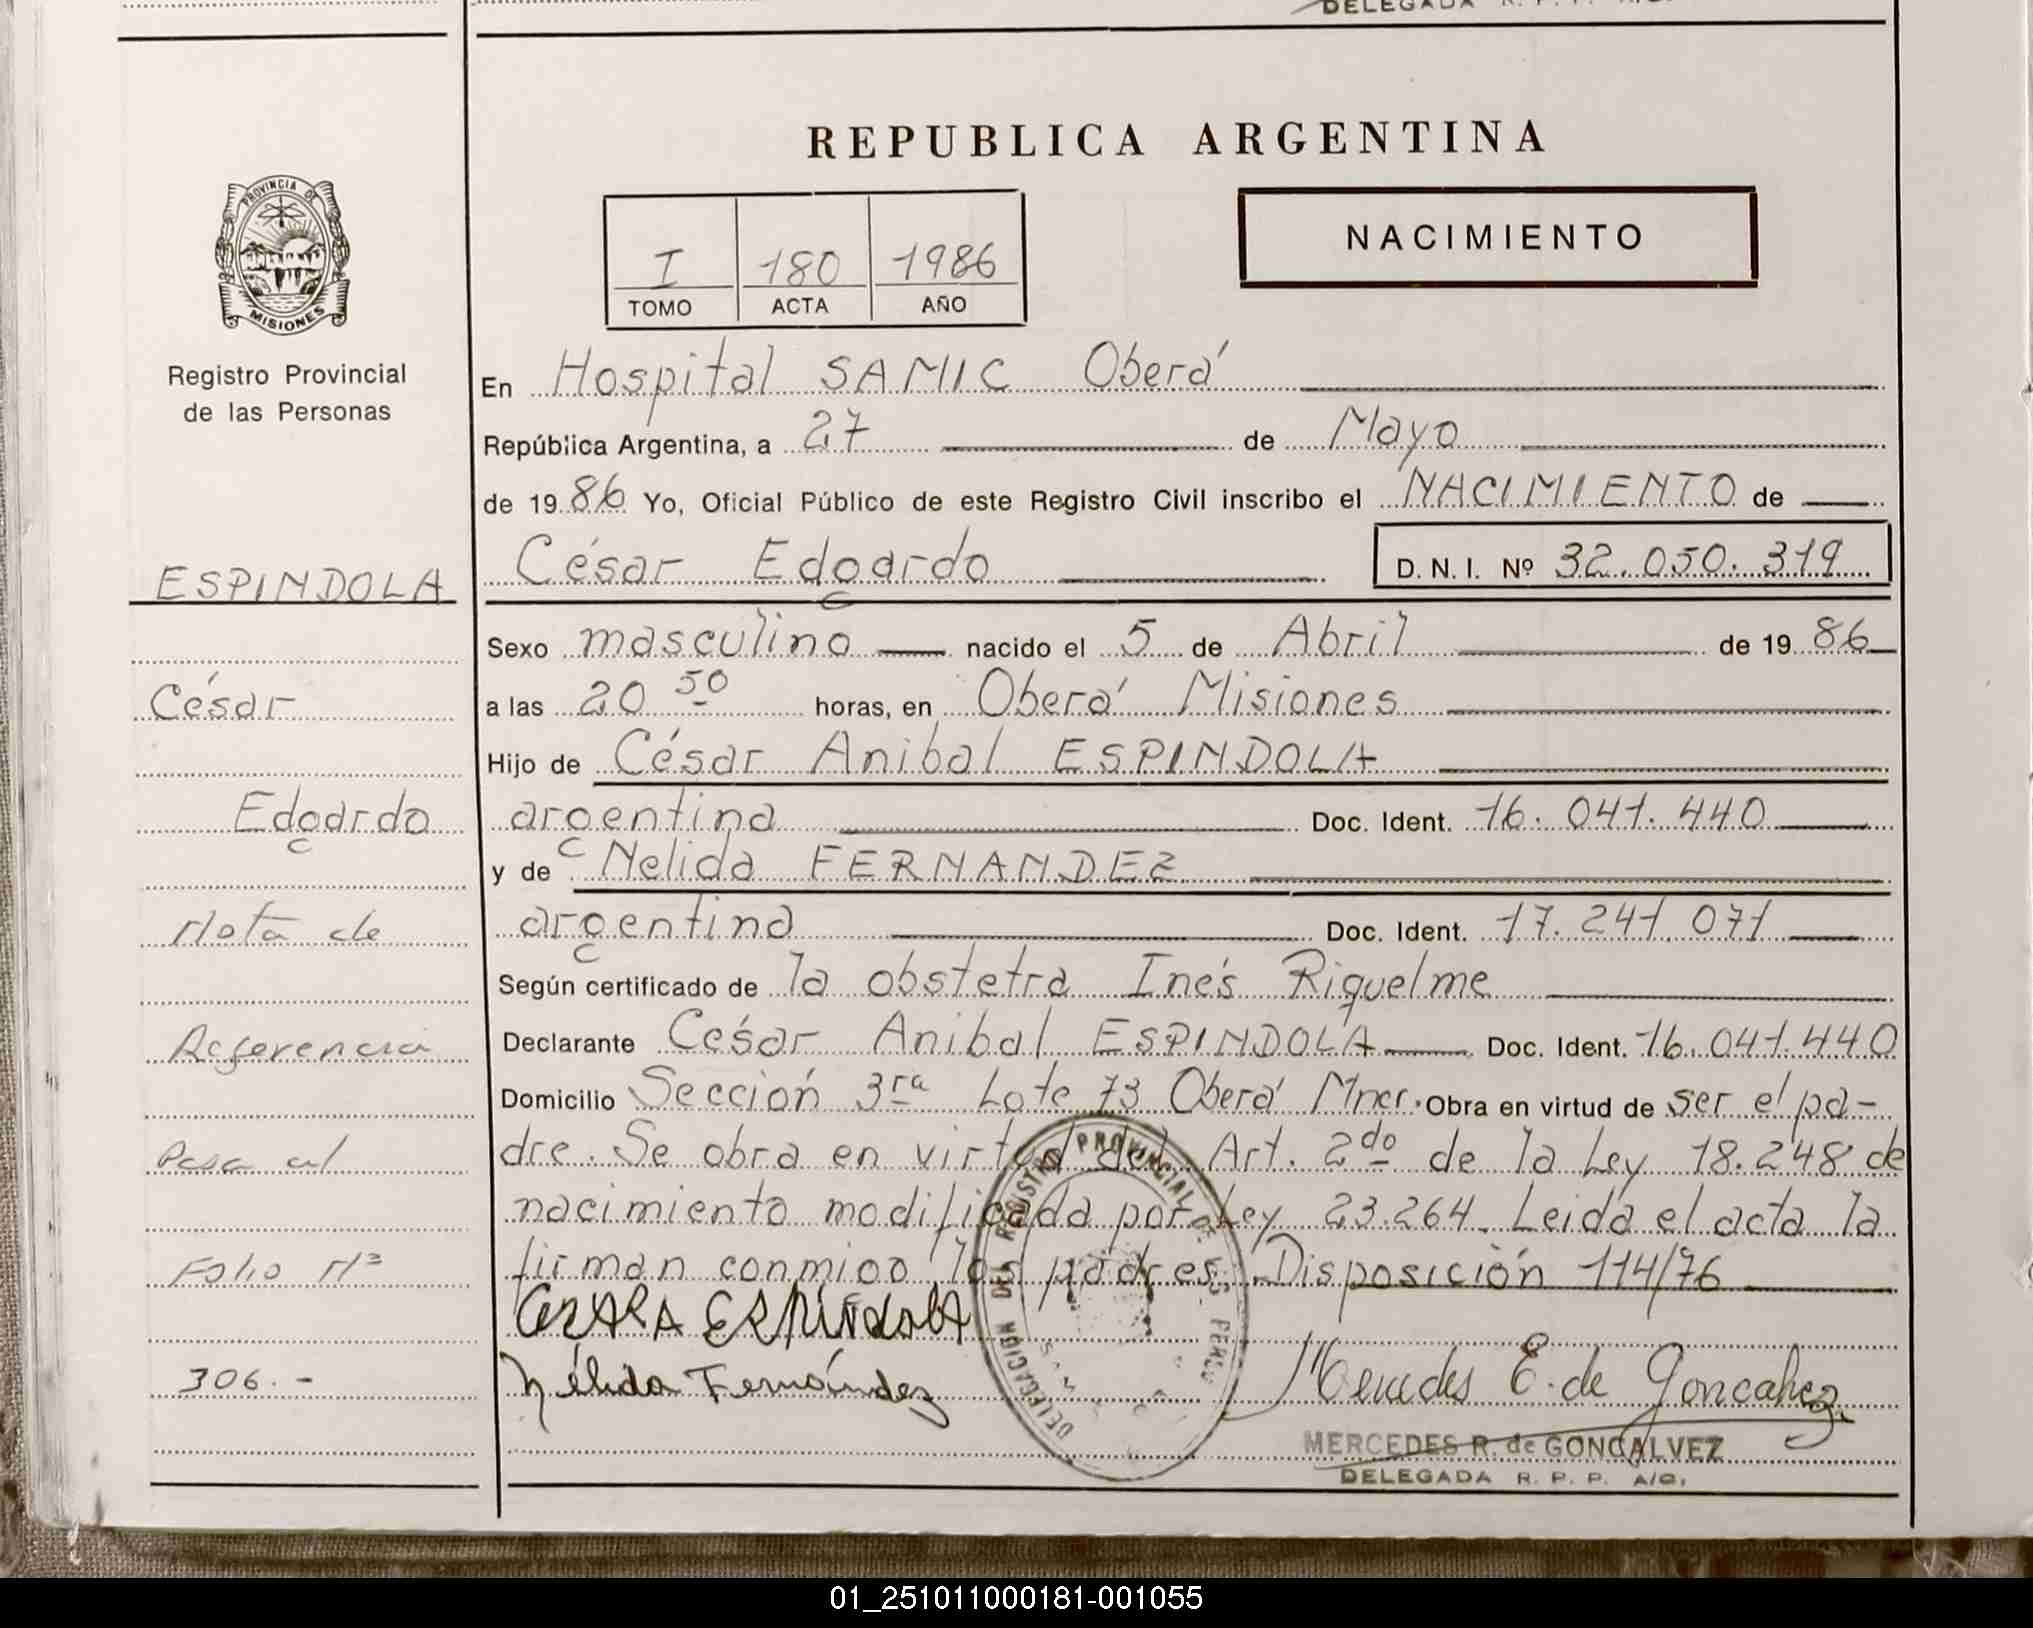 DELEGADA R. P. P. A/C.
REPUBLICA ARGENTINA
PROVINCIA DE
MISIONES
Registro Provincial
de las Personas
NACIMIENTO
I 180 1986
TOMO ACTA AÑO
En Hospital SAMIC Oberá
República Argentina, a 27 de Mayo
de 1986 Yo, Oficial Público de este Registro Civil inscribo el NACIMIENTO de
César Edgardo D. N. I. Nº 32.050.319
Sexo masculino nacido el 5 de Abril de 1986
a las 20 50 horas, en Oberá Misiones
Hijo de César Anibal ESPINDOLA
argentina Doc. Ident. 16.041.440
y de Nelida FERNANDEZ
argentina Doc. Ident. 17.241.071
Según certificado de la obstetra Inés Riquelme
Declarante César Anibal ESPINDOLA Doc. Ident. 16.041.440
Domicilio Sección 3ra Lote 73 Oberá Mnes. Obra en virtud de ser el pa-
dre. Se obra en virtud del Art. 2do de la Ley 18.248 de
nacimiento modificada por Ley 23.264. Leida el acta la
firman conmigo los padres. Disposición 114/76
ESPINDOLA
Nélida Fernández
Mercedes E. de Goncalvez
MERCEDES R. de GONCALVEZ
DELEGADA R. P. P. A/C.
DELEGACION DEL REGISTRO PROVINCIAL DE LAS PERSO
ESPINDOLA
César
Edgardo
Nota de
Referencia
Pasa al
Folio Nº
306.-
01_251011000181-001055